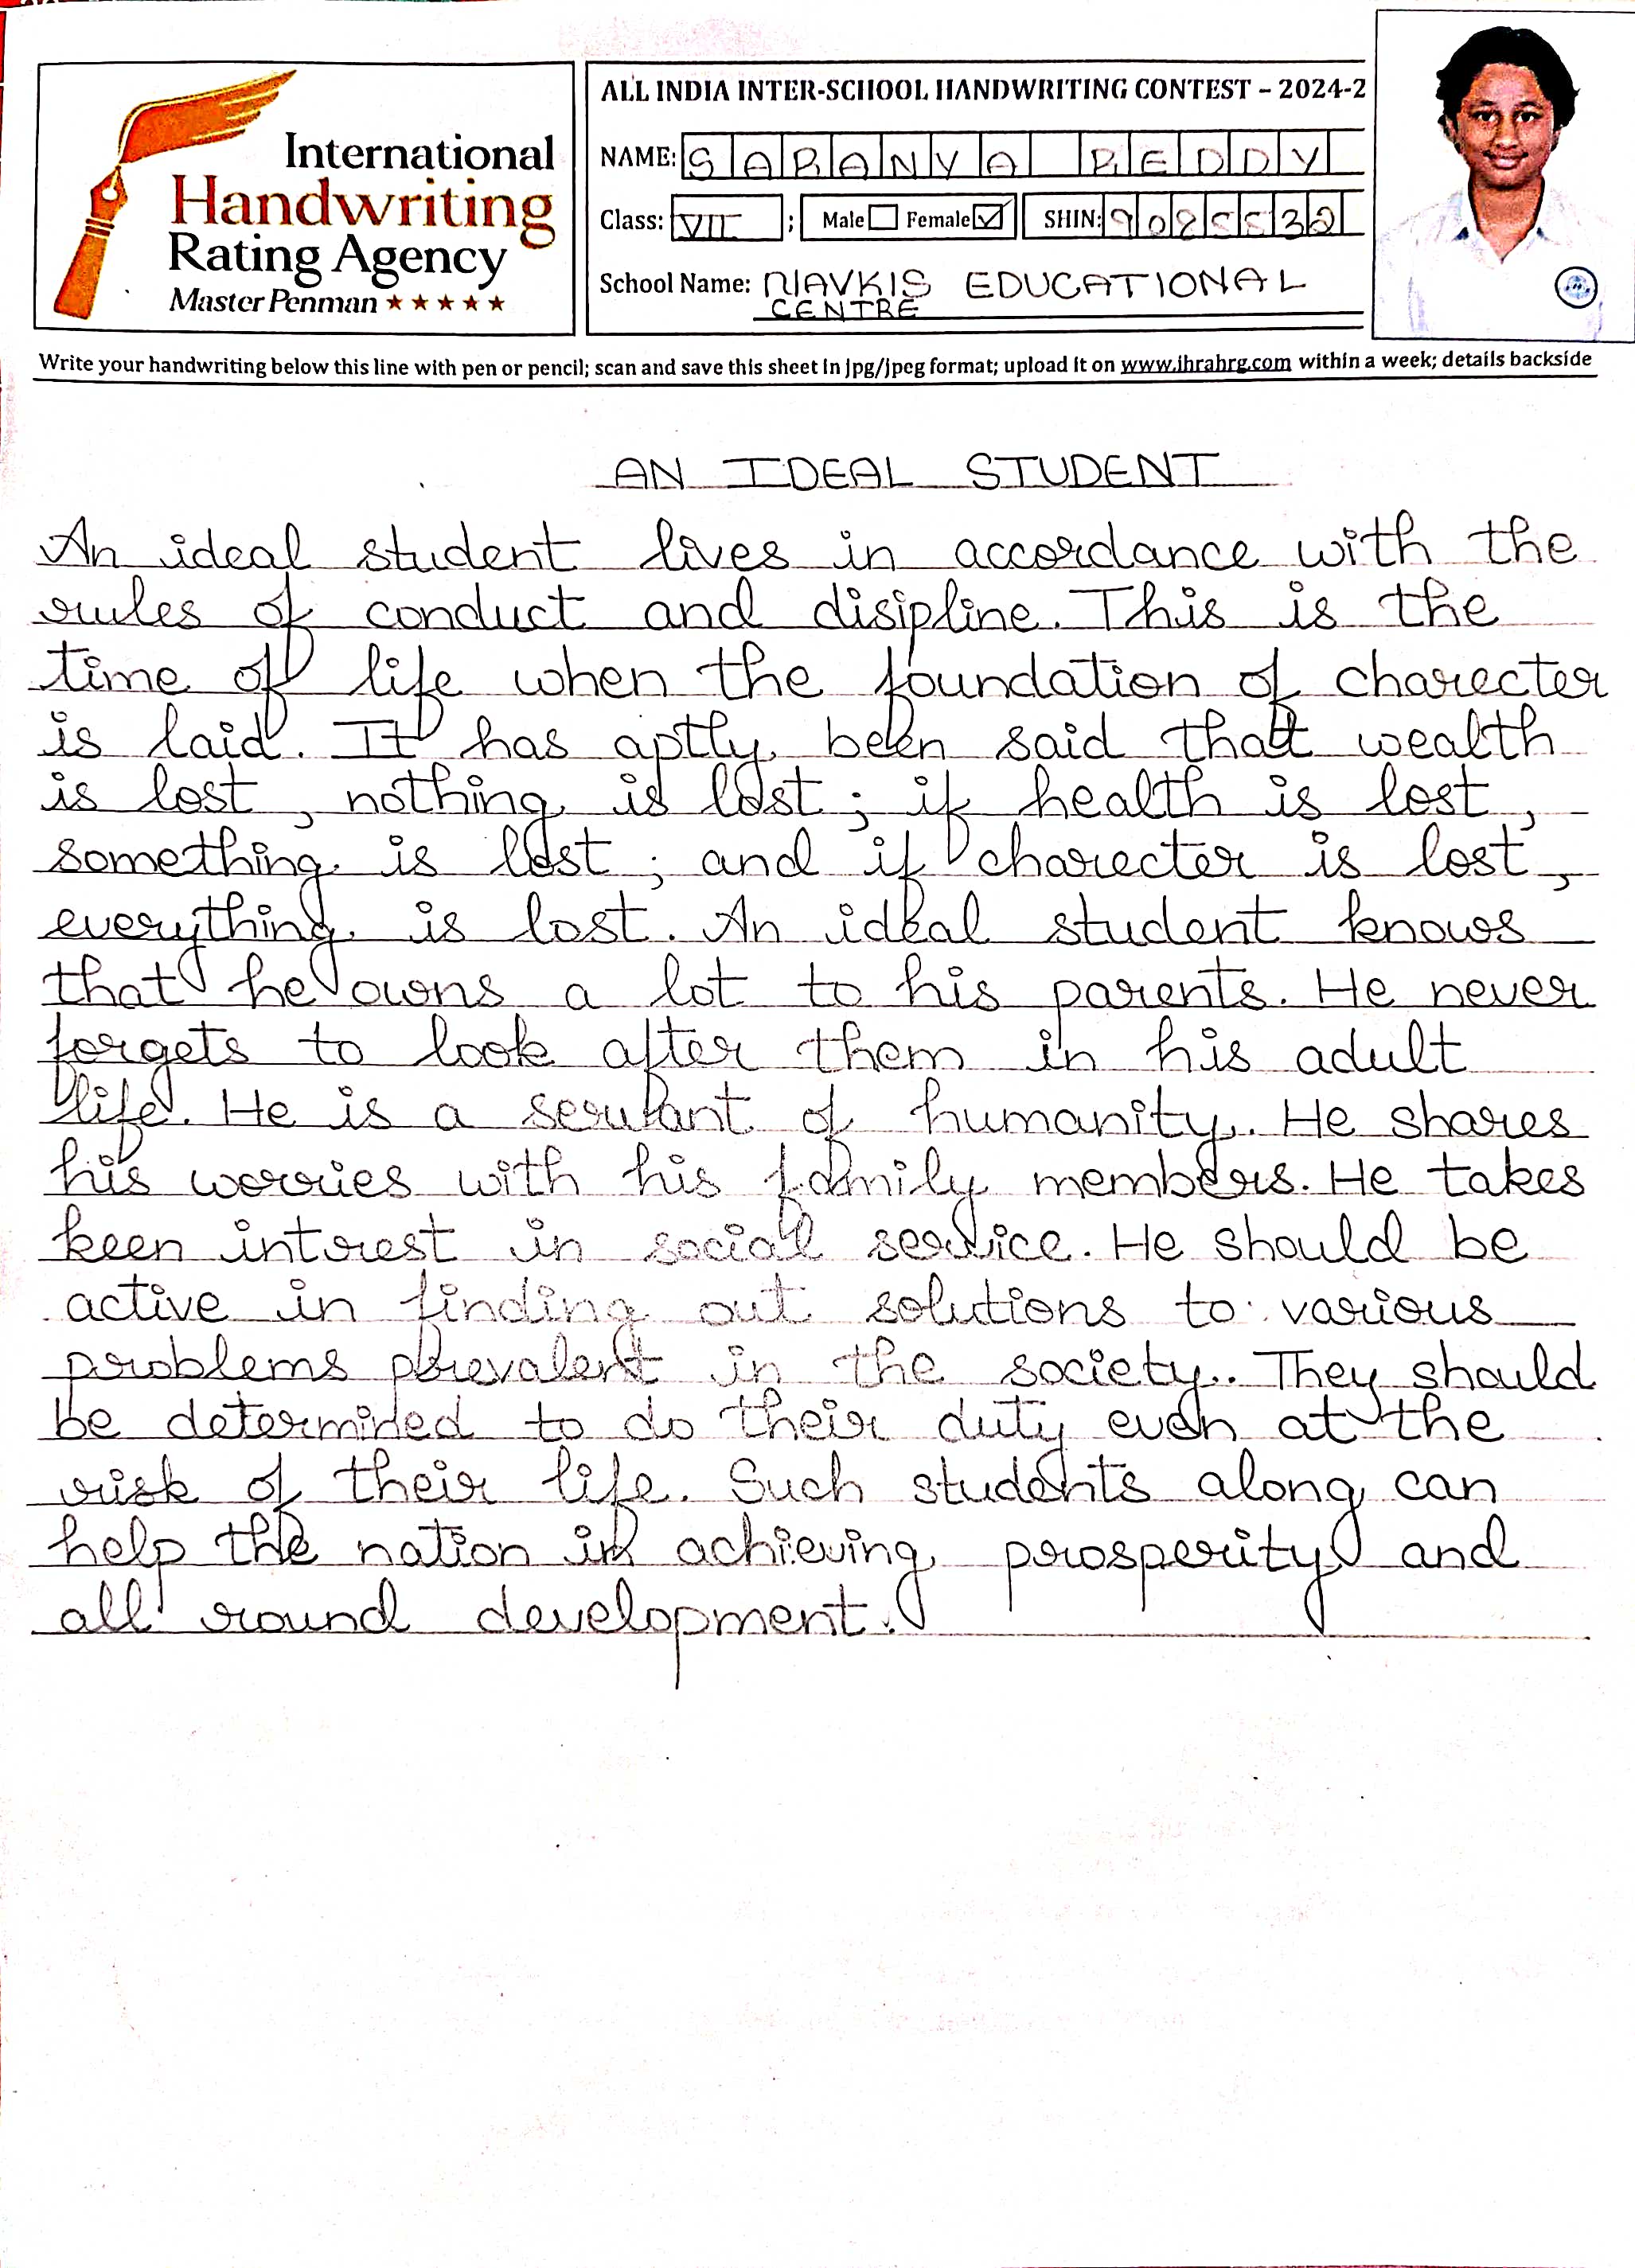 International
Handwriting
Rating Agency
Master Penman ★★★★★
ALL INDIA INTER-SCHOOL HANDWRITING CONTEST – 2024-2
NAME: SARANYA REDDY
Class: VII ; Male Female SHIN: 9085532
School Name: NAVKIS EDUCATIONAL
CENTRE
Write your handwriting below this line with pen or pencil; scan and save this sheet in jpg/jpeg format; upload it on www.ihrahrg.com within a week; details backside
AN IDEAL STUDENT
An ideal student lives in accordance with the
rules of conduct and disipline. This is the
time of life when the foundation of charecter
is laid. It has aptly been said that wealth
is lost, nothing is lost; if health is lost,
something is lost; and if charecter is lost,
everything is lost. An ideal student knows
that he owns a lot to his parents. He never
forgets to look after them in his adult
life. He is a servant of humanity. He shares
his worries with his family members. He takes
keen intrest in social service. He should be
active in finding out solutions to various
problems prevalent in the society. They should
be determined to do their duty even at the
risk of their life. Such students along can
help the nation in achieving prosperity and
all round development.